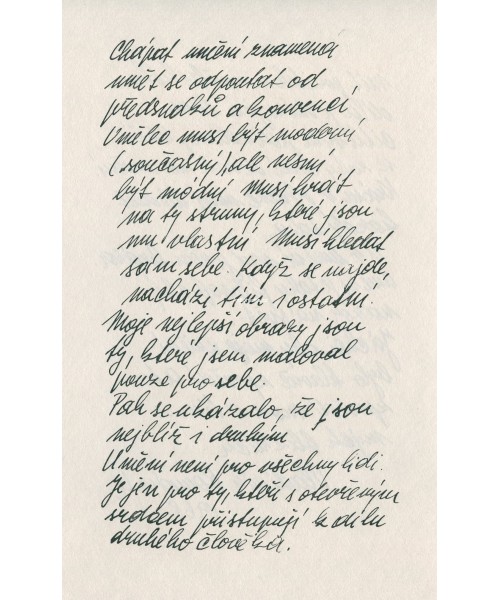 Chápat umění znamená
umět se odpoutat od
předsudků a konvencí
Umělec musí být moderní
(současný), ale nesmí
být módní Musí hrát
na ty struny, které jsou
mu vlastní Musí hledat
sám sebe. Když se najde,
nachází tím i ostatní.
Moje nejlepší obrazy jsou
ty, které jsem maloval
pouze pro sebe.
Pak se ukázalo, že jsou
nejblíž i druhým
Umění není pro všechny lidi.
Je jen pro ty, kteří s otevřeným
srdcem přistupují k dílu
druhého člověka.